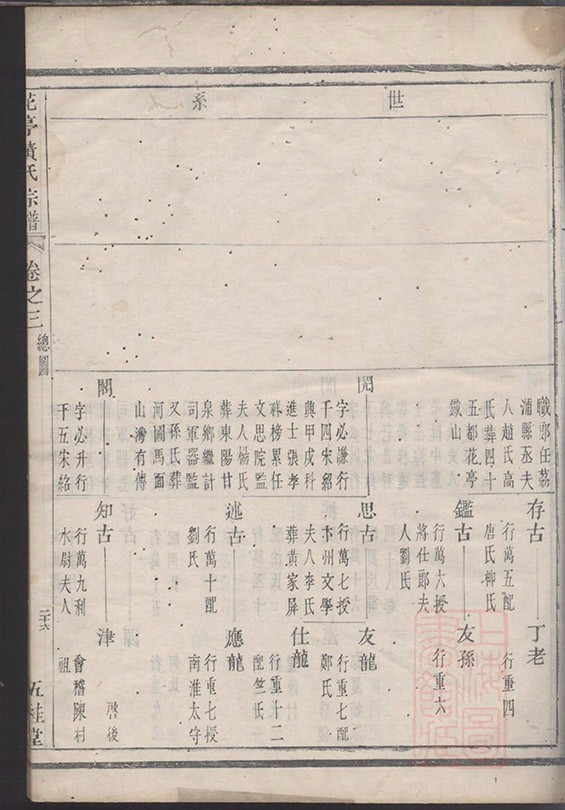 世系
職郎任荔
浦縣丞夫
人趙氏高
氏葬四十
五都花亭
鐵山
存古
行萬五配
唐氏柳氏
丁老
行重四
鑑古
行萬六授
將仕郎夫
人劉氏
友孫
行重六
閌
字必謙行
千四宋紹
興甲戌科
進士張孝
祥榜累任
文思院監
夫人楊氏
葬東陽甘
泉鄉繼計
司軍器監
又孫氏葬
河圖馬面
山灣有傳
思古
行萬七授
卞州文學
夫人李氏
葬黃家屏
友龍
行重七配
鄭氏
仕龍
行重十二
配竺氏
述古
行萬十配
劉氏
應龍
行重七授
南淮太守
閣
字必升行
千五宋紹
知古
行萬九利
水尉夫人
津
會稽陳村
祖
啓後
花亭黃氏宗譜
卷之三
總圖
二十六
五桂堂